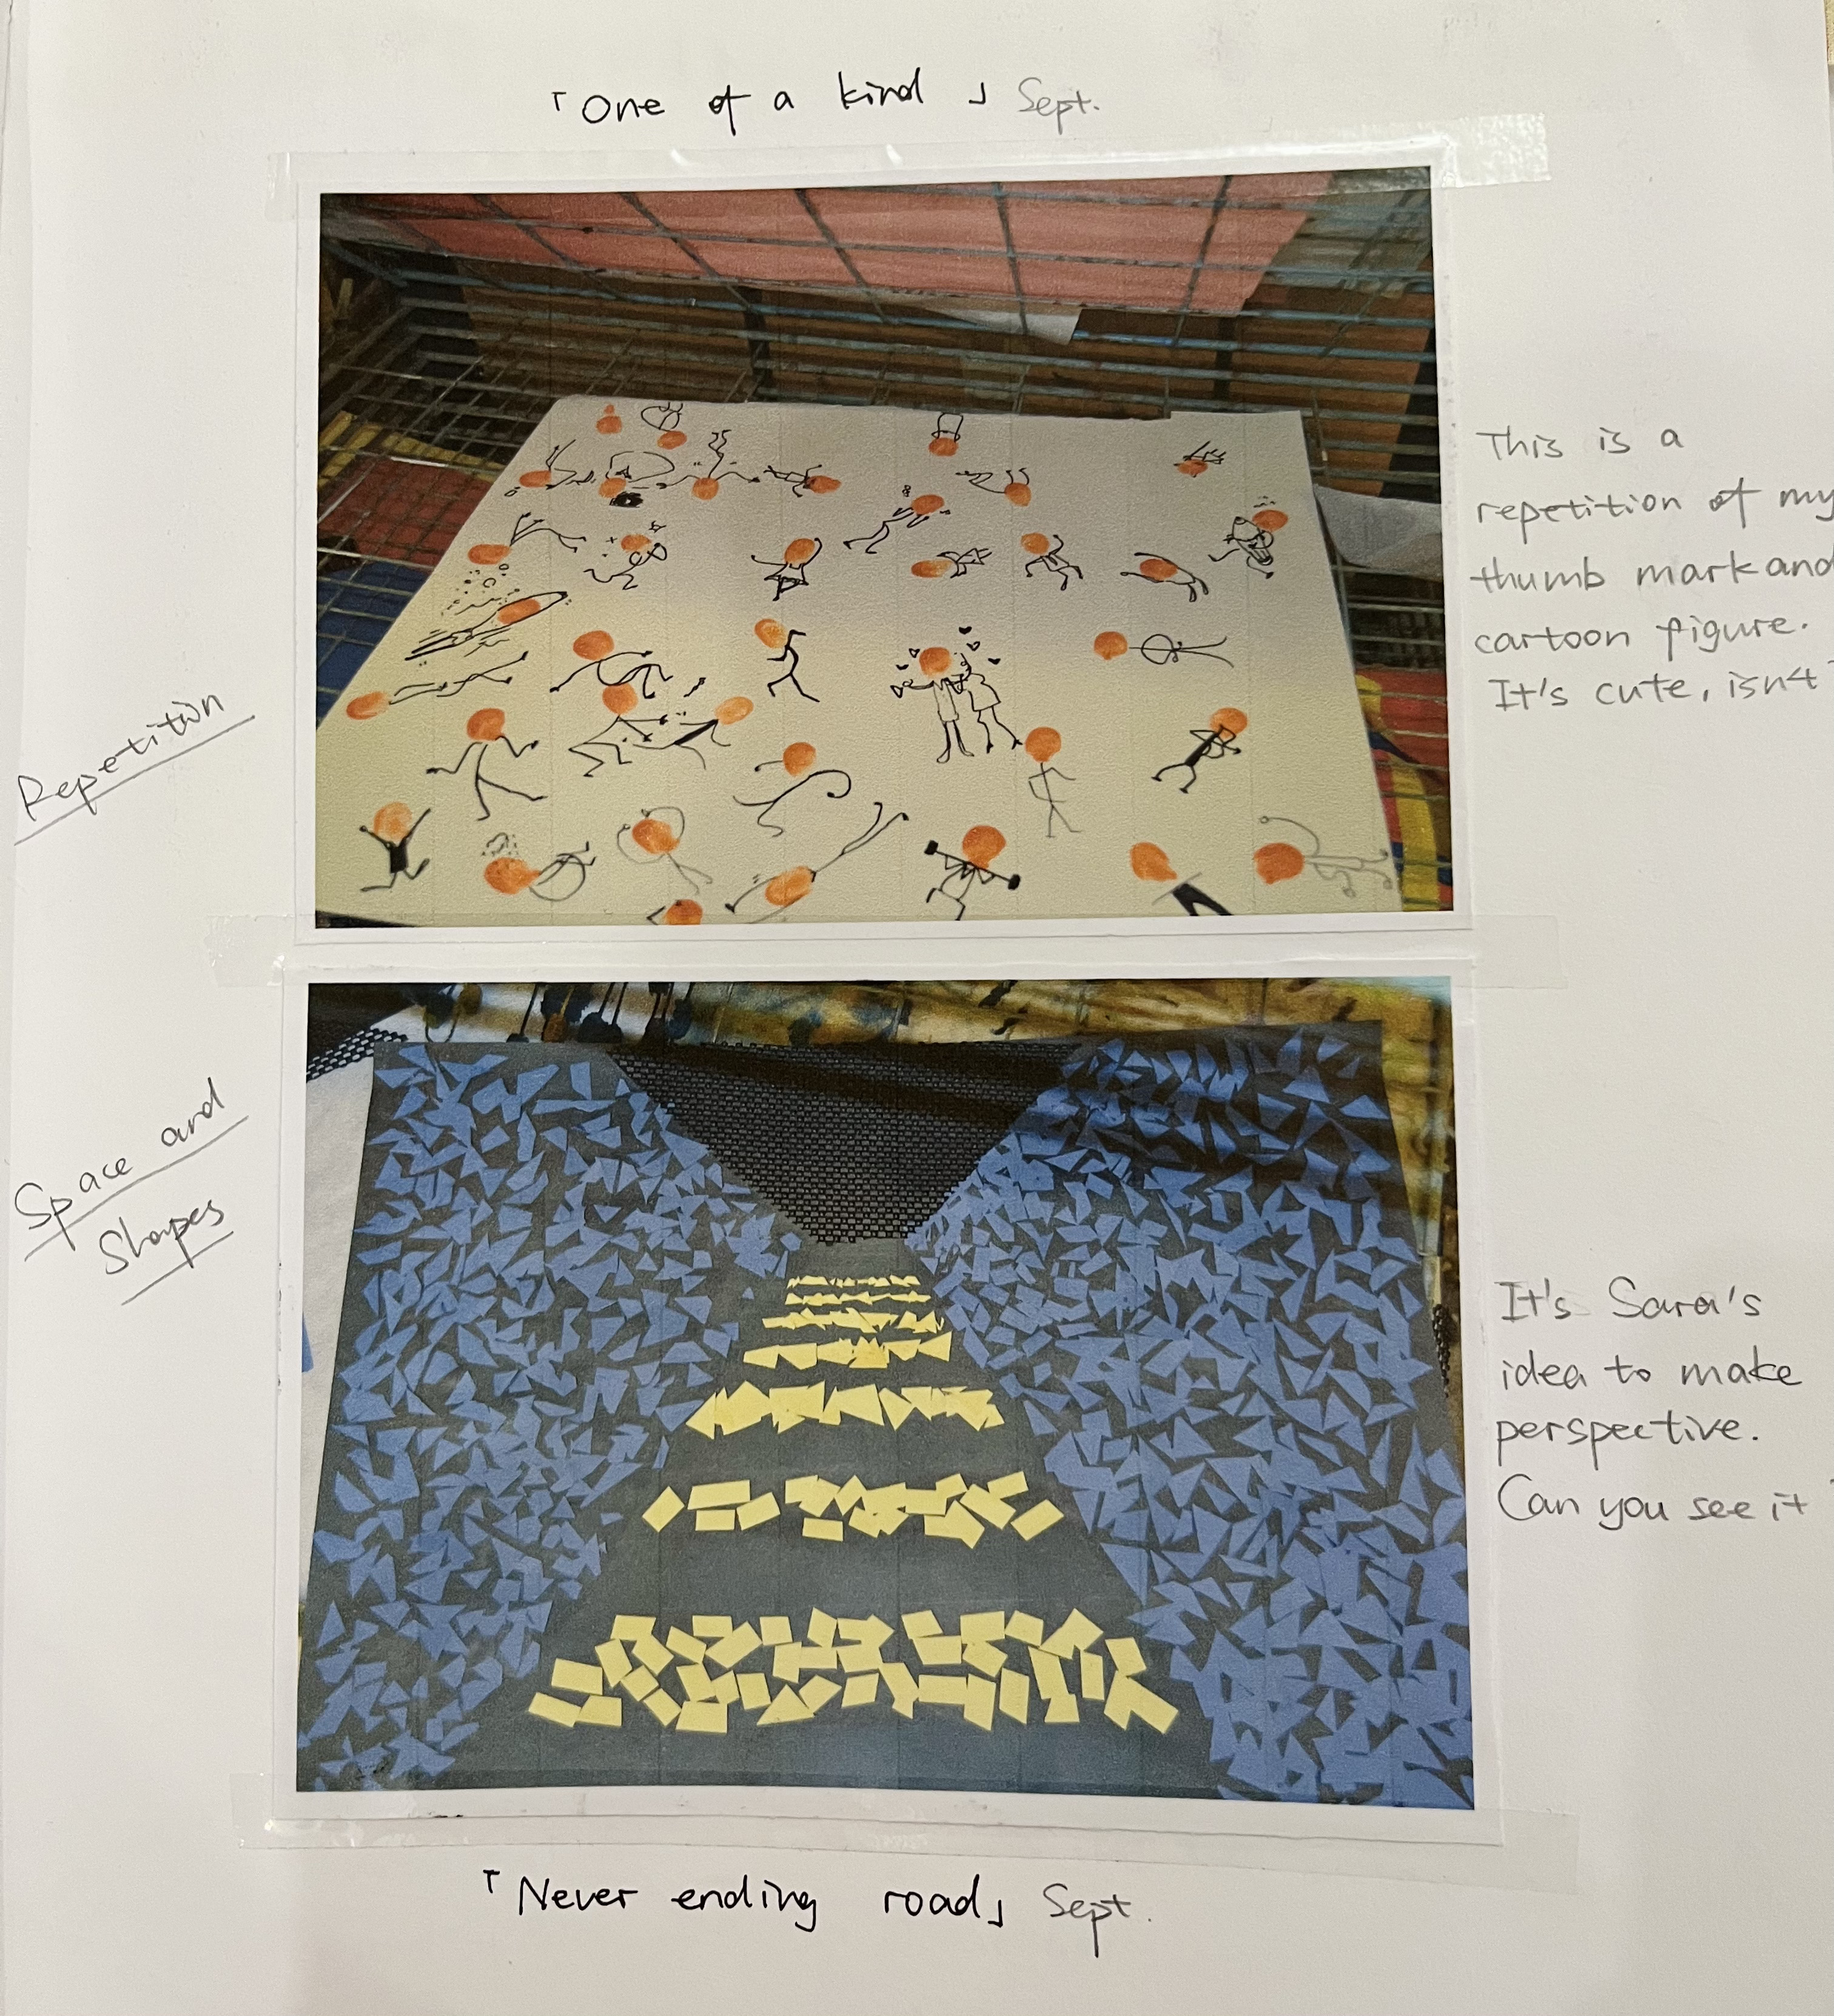 「One of a kind」 Sept.
This is a
repetition of my
thumb mark and
cartoon figure.
It's cute, isn't
Repetition
Space and
Shapes
It's Sara's
idea to make
perspective.
Can you see it
「Never ending road」 Sept.